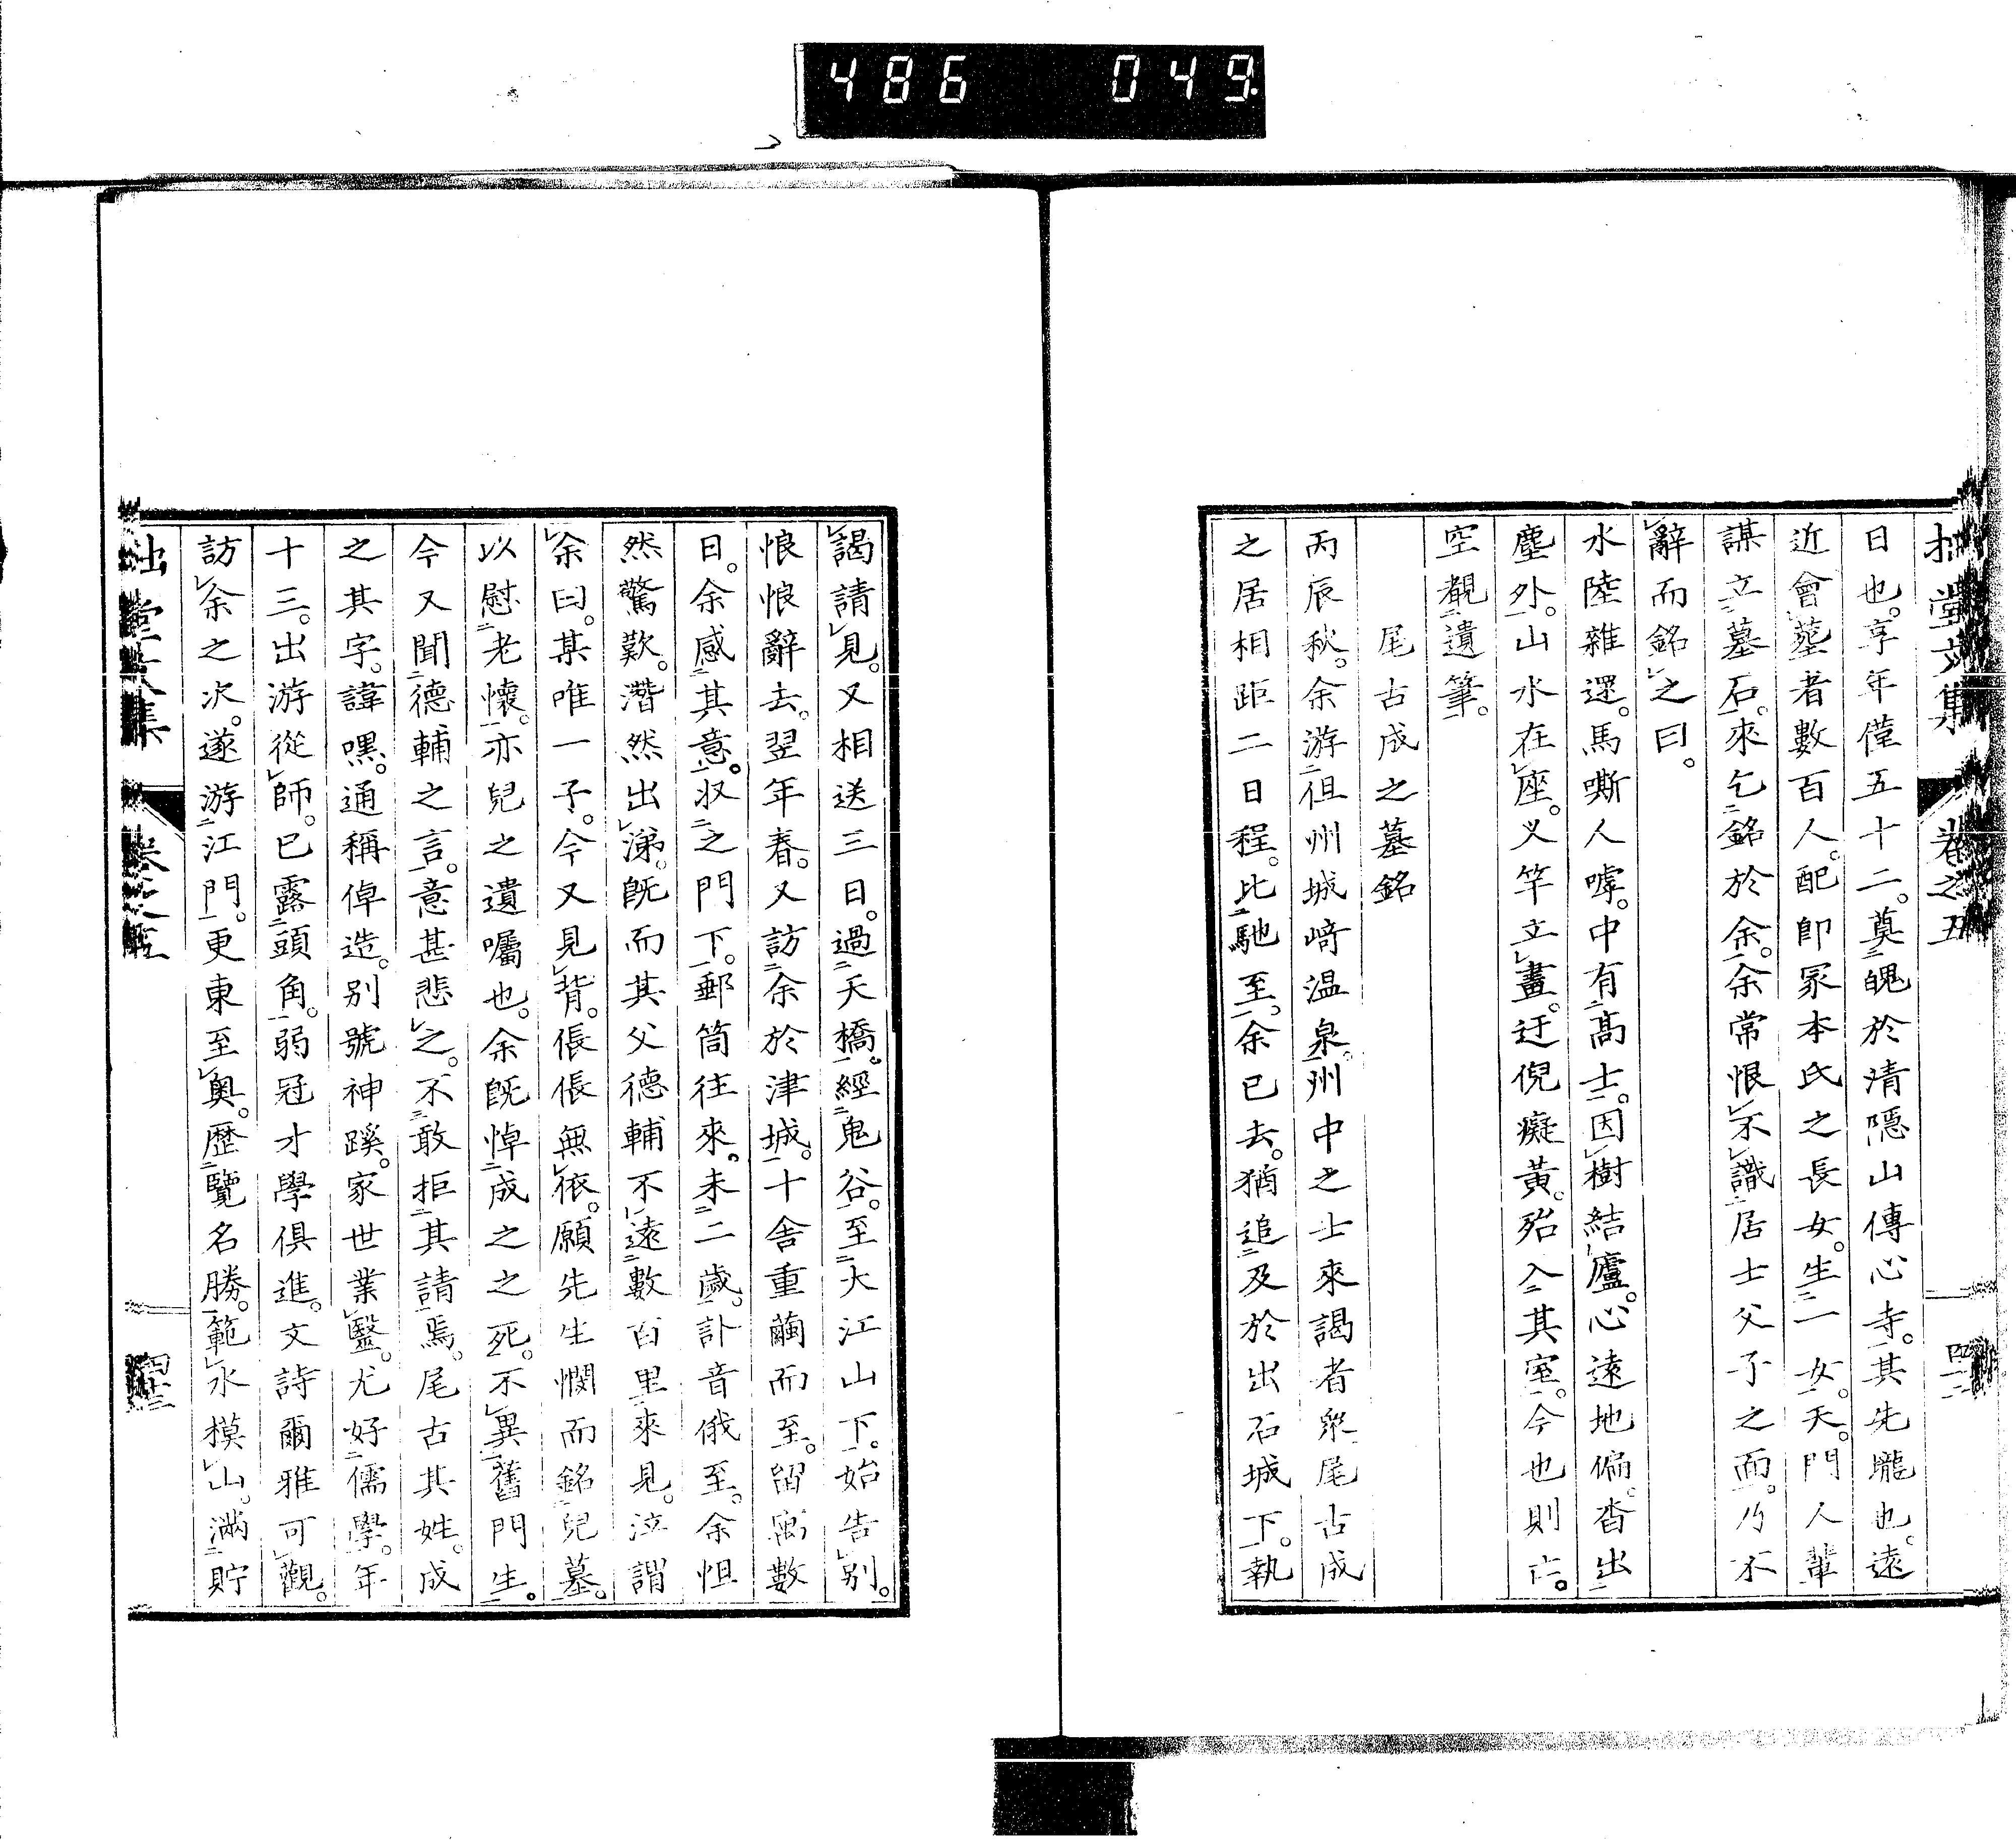 486 049
拙堂文集 卷之五
日也。享年僅五十二。奠魄於清隱山傳心寺。其先隴也。遠
近會葬者數百人。配卽冢本氏之長女。生一女。夭。門人輩
謀立墓石。來乞銘於余。余常恨不識居士父子之面。乃不
辭而銘之曰。
水陸雜還。馬嘶人嘑。中有高士。因樹結廬。心遠地偏。杳出
塵外。山水在座。义竿立畫。迂倪癡黃。殆入其室。今也則亡。
空覩遺筆。
尾古成之墓銘
丙辰秋。余游但州城﨑温泉。州中之士來謁者衆。尾古成
之居相距二日程。比馳至。余已去。猶追及於出石城下。執
謁請見。又相送三日。過天橋。經鬼谷。至大江山下。始告別。
悢悢辭去。翌年春。又訪余於津城。十舍重繭而至。留寓數
日。余感其意。収之門下。郵筒往來。未二歲。訃音俄至。余怛
然驚歎。潸然出涕。既而其父德輔不遠數百里來見。泣謂
余曰。某唯一子。今又見背。倀倀無依。願先生憫而銘兒墓。
以慰老懷。亦兒之遺囑也。余既悼成之之死。不異舊門生。
今又聞德輔之言。意甚悲之。不敢拒其請焉。尾古其姓。成
之其字。諱嘿。通稱倬造。別號神蹊。家世業毉。尤好儒學。年
十三。出游從師。已露頭角。弱冠才學俱進。文詩爾雅可觀。
訪余之次。遂游江門。更東至奧。歷覽名勝。範水模山。滿貯
拙堂文集 卷之五